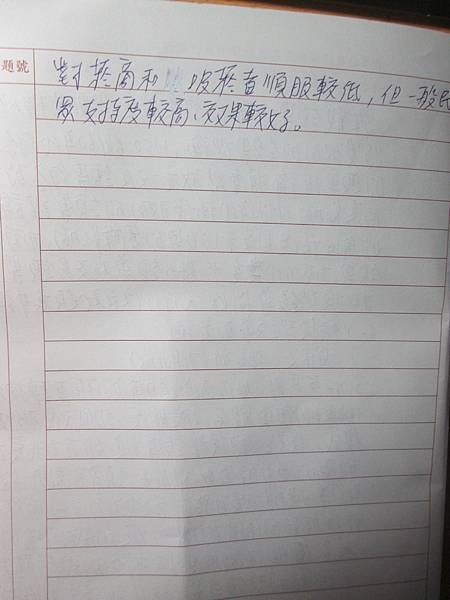 題號
對菸商和吸菸者順服較低，但一般民
眾支持度較高、效果較好。